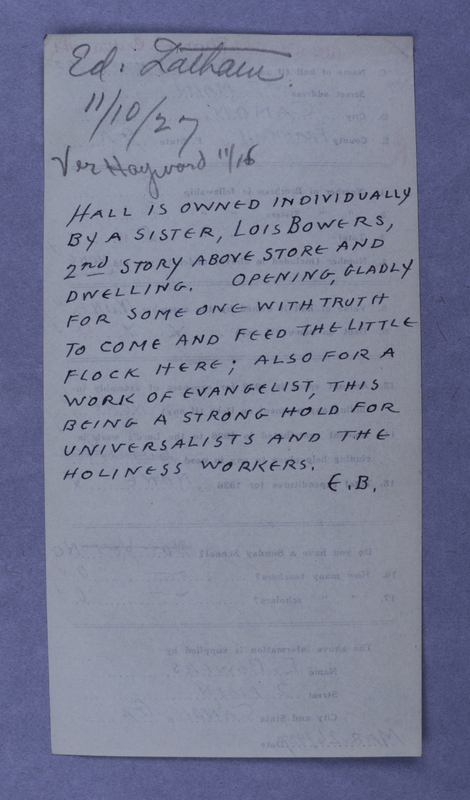 Ed. Latham
11/10/27
Ver Hayward 11/16
HALL IS OWNED INDIVIDUALLY
BY A SISTER, LOIS BOWERS,
2nd STORY ABOVE STORE AND
DWELLING. OPENING, GLADLY
FOR SOME ONE WITH TRUTH
TO COME AND FEED THE LITTLE
FLOCK HERE; ALSO FOR A
WORK OF EVANGELIST, THIS
BEING A STRONG HOLD FOR
UNIVERSALISTS AND THE
HOLINESS WORKERS.
E.B.